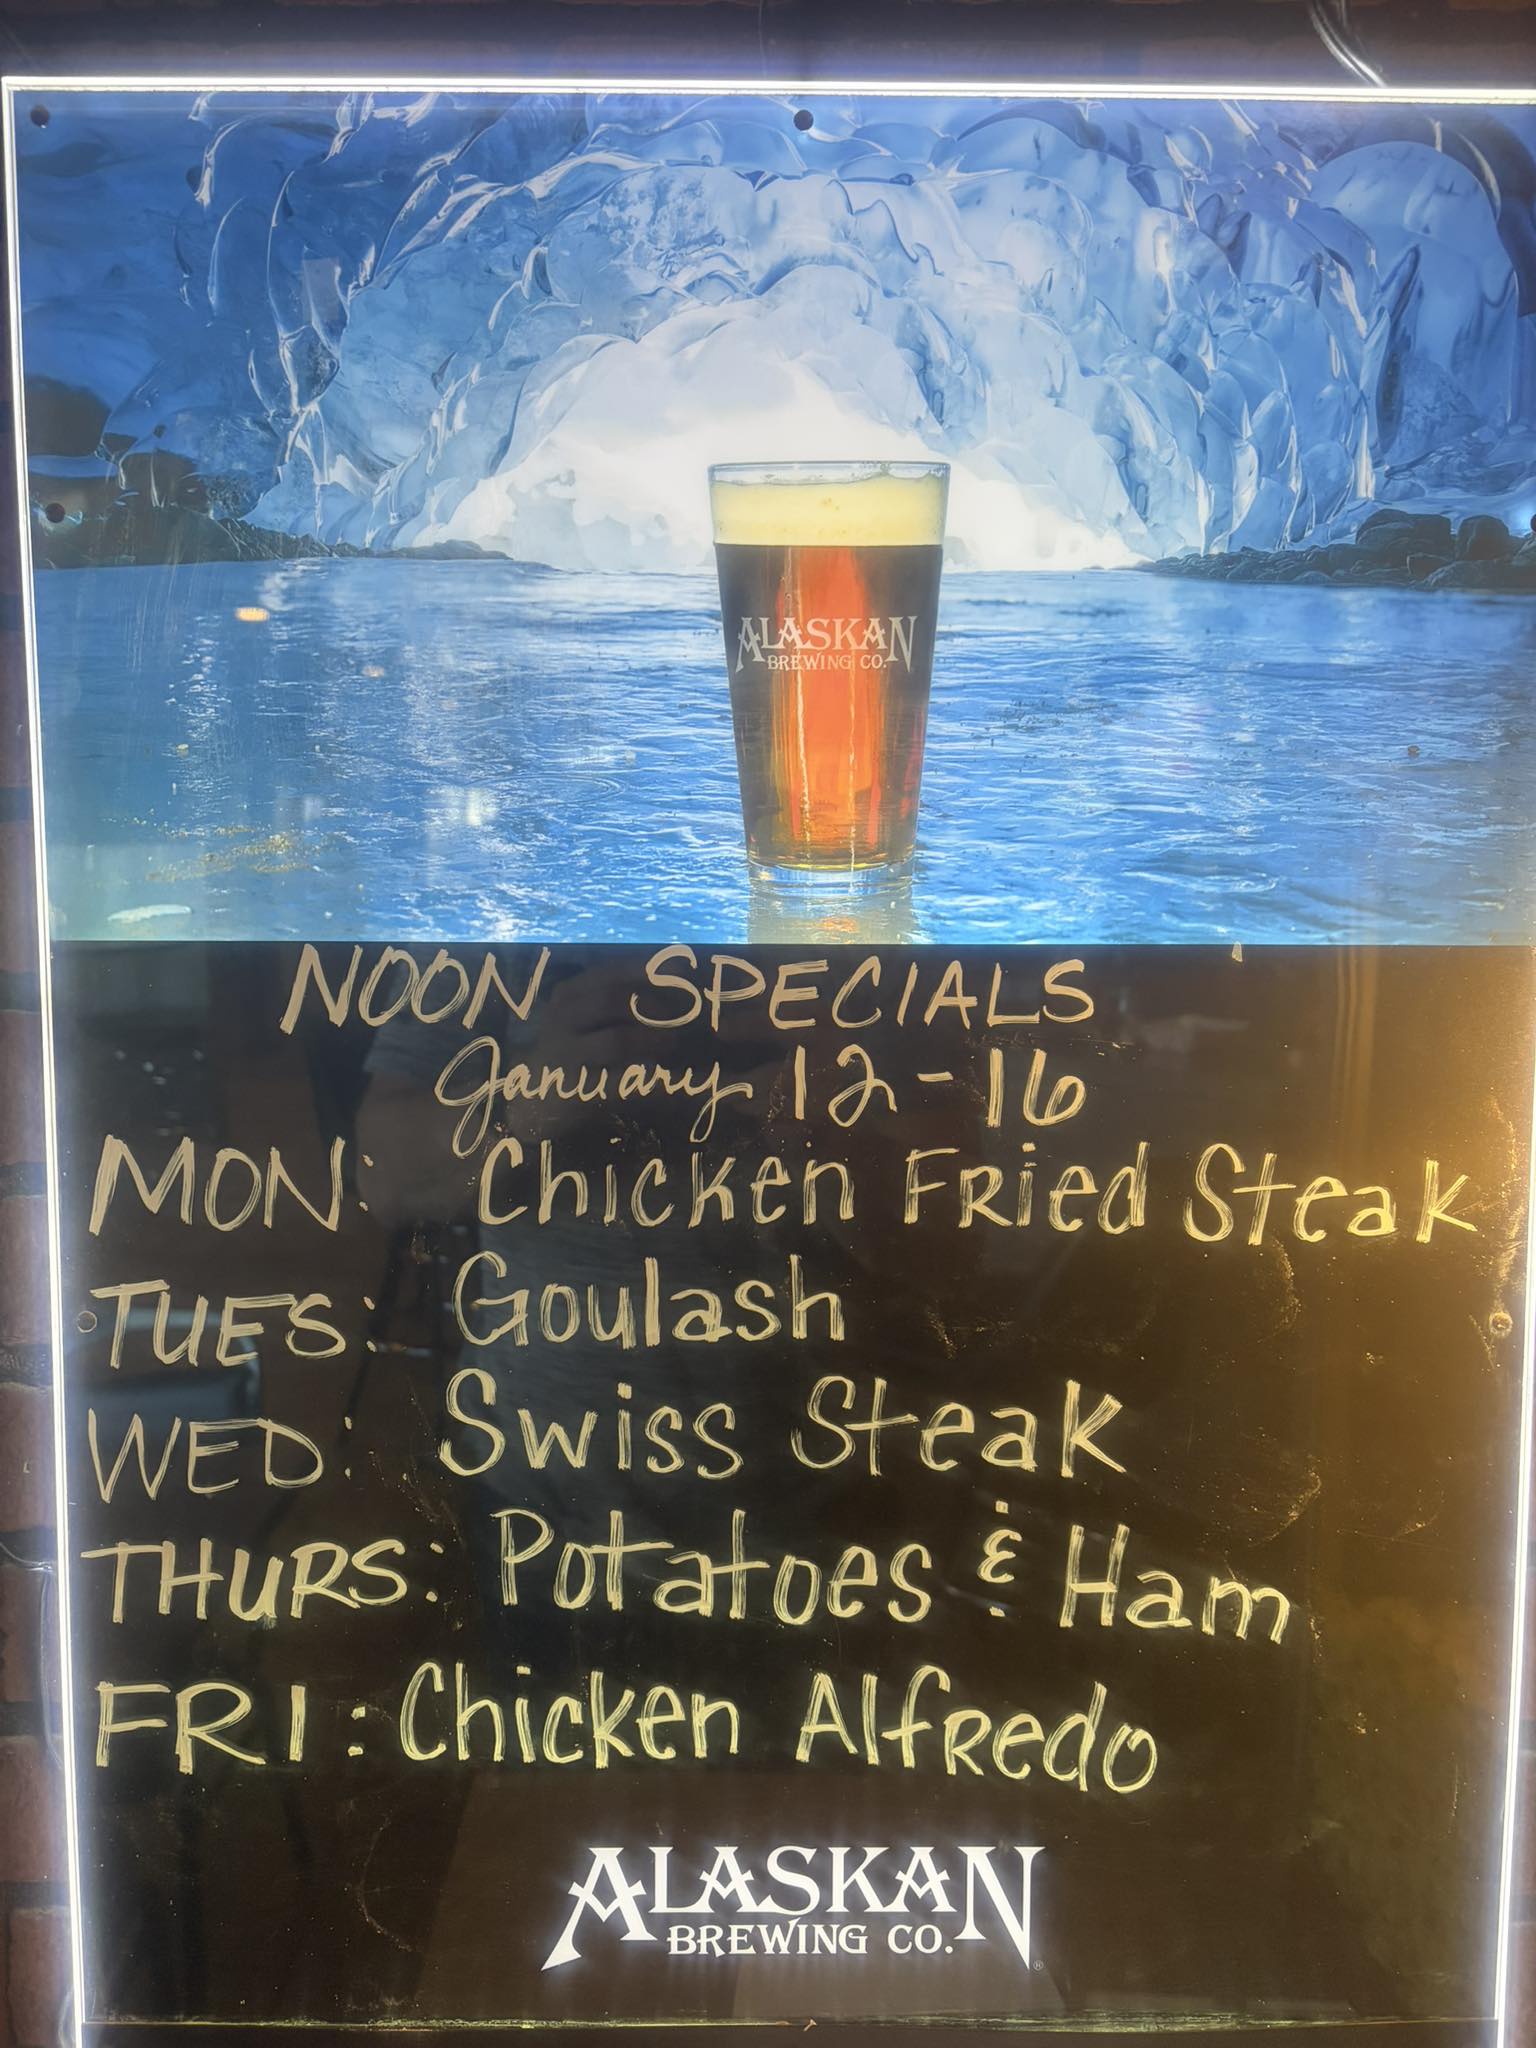 ALASKAN
BREWING CO.
NOON SPECIALS
January 12-16
MON: Chicken Fried Steak
TUES: Goulash
WED: Swiss Steak
THURS: Potatoes & Ham
FRI: Chicken Alfredo
ALASKAN
BREWING CO.®